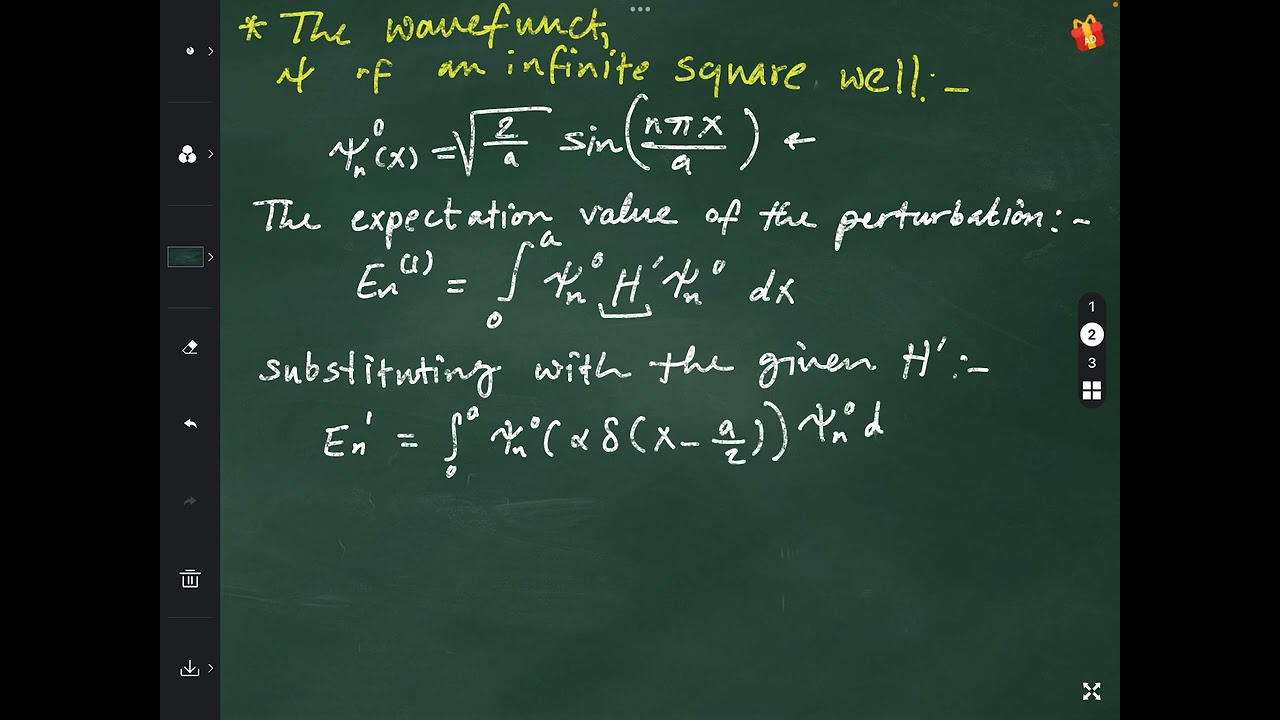 * The wavefunct,
ψ of an infinite square well:-
ψₙ⁰(x) = √(2/a) sin(nπx/a) ←
The expectation value of the perturbation:-
Eₙ⁽¹⁾ = ∫₀ᵃ ψₙ⁰ H′ ψₙ⁰ dx
substituting with the given H′:-
Eₙ′ = ∫₀ᵃ ψₙ⁰(αδ(x-a/2)) ψₙ⁰ d
AD
1
2
3